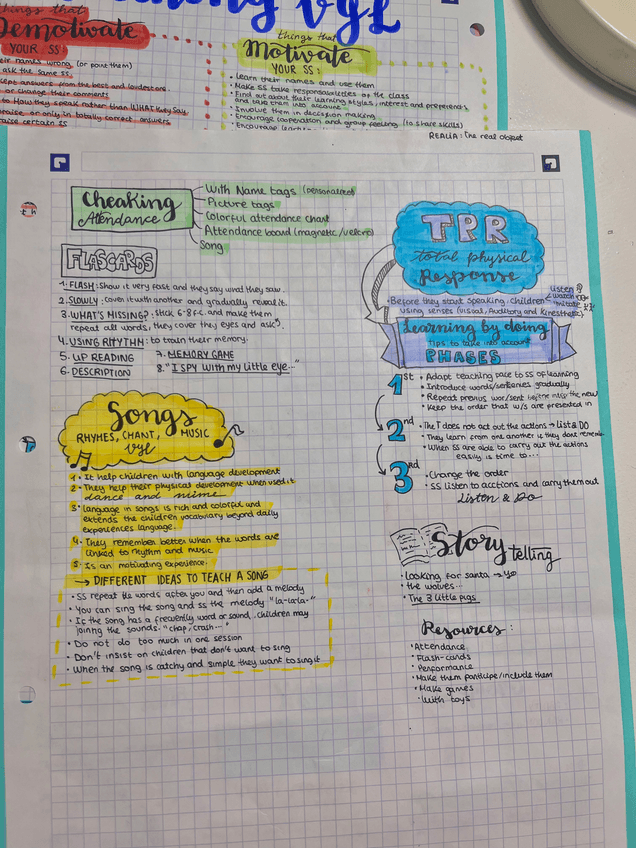 things that
Demotivate
YOUR SS
their names wrong (or point them)
ask the same ss.
accept answers from the best and loudest ones
or change their comments
to How they speak rather than WHAT they say
praise or only in totally correct answers
certain ss
VYL
things that
Motivate
YOUR SS:
• Learn their names and use them
• Make SS take responsabilities of the class
• Find out about their learning styles, interest and preferences
and take them into account
• Involve them in decision making
• Encourage cooperation and group feeling (to share skills)
• Encourage
REALIA: The real object
Cheaking
Attendance
With Name tags (personalized)
Picture tags
Colorful attendance chart
Attendance board (magnetic/velcro)
Song
FLASCARDS
1. FLASH: Show it very fast and they say word they saw.
2. SLOWLY: cover it with another and gradually reveal it.
3. WHAT'S MISSING?: stick 6-8 f.c. and make them
repeat all words, they cover they eyes and ask
4. USING RHYTHM: to train their memory.
5. UP READING
6. DESCRIPTION
7. MEMORY GAME
8. "I SPY with my little eye..."
Songs
RHYMES, CHANT, MUSIC
vyl
1 • It help children with language development
2 • They help their physical development when used it
dance and mime
3 • language in songs is rich and colorful and
extends the children vocabulary beyond daily
experiences language.
4 • They remember better when the words are
linked to rhythm and music
5 • Is an motivating experience.
→ DIFFERENT IDEAS TO TEACH A SONG
• SS repeat the words after you and then add a melody
• You can sing the song and ss the melody "la-la-la."
• If the song has a frecuently word or sound, children may
joining the sounds. "chap, crash..."
• Do not do too much in one session
• Don't insist on children that don't want to sing
• When the song is catchy and simple they want to sing it
TPR
total physical
Response
• Before they start speaking, children
listen
watch
imitate
using senses (visual, Auditory and Kinesthetic)
Learning by doing
tips to take into account
PHASES
1st
• Adapt teaching pace to SS of learning
• Introduce words/sentenses gradually
• Repeat previus wor/sent before the new
• Keep the order that w/s are presented in
2nd
• The T does not act out the actions → list & DO
• They learn from one another if they dont remember
• When SS are able to carry out the actions
easily is time to...
3rd
• Change the order
• SS listen to acctions and carry them out
Listen & Do
Story telling
• Looking for santa →
• the wolves...
• The 3 little pigs
Resources:
• Attendance
• Flash-cards
• Performance
• Make them participe/include them
• Make games
• With toys